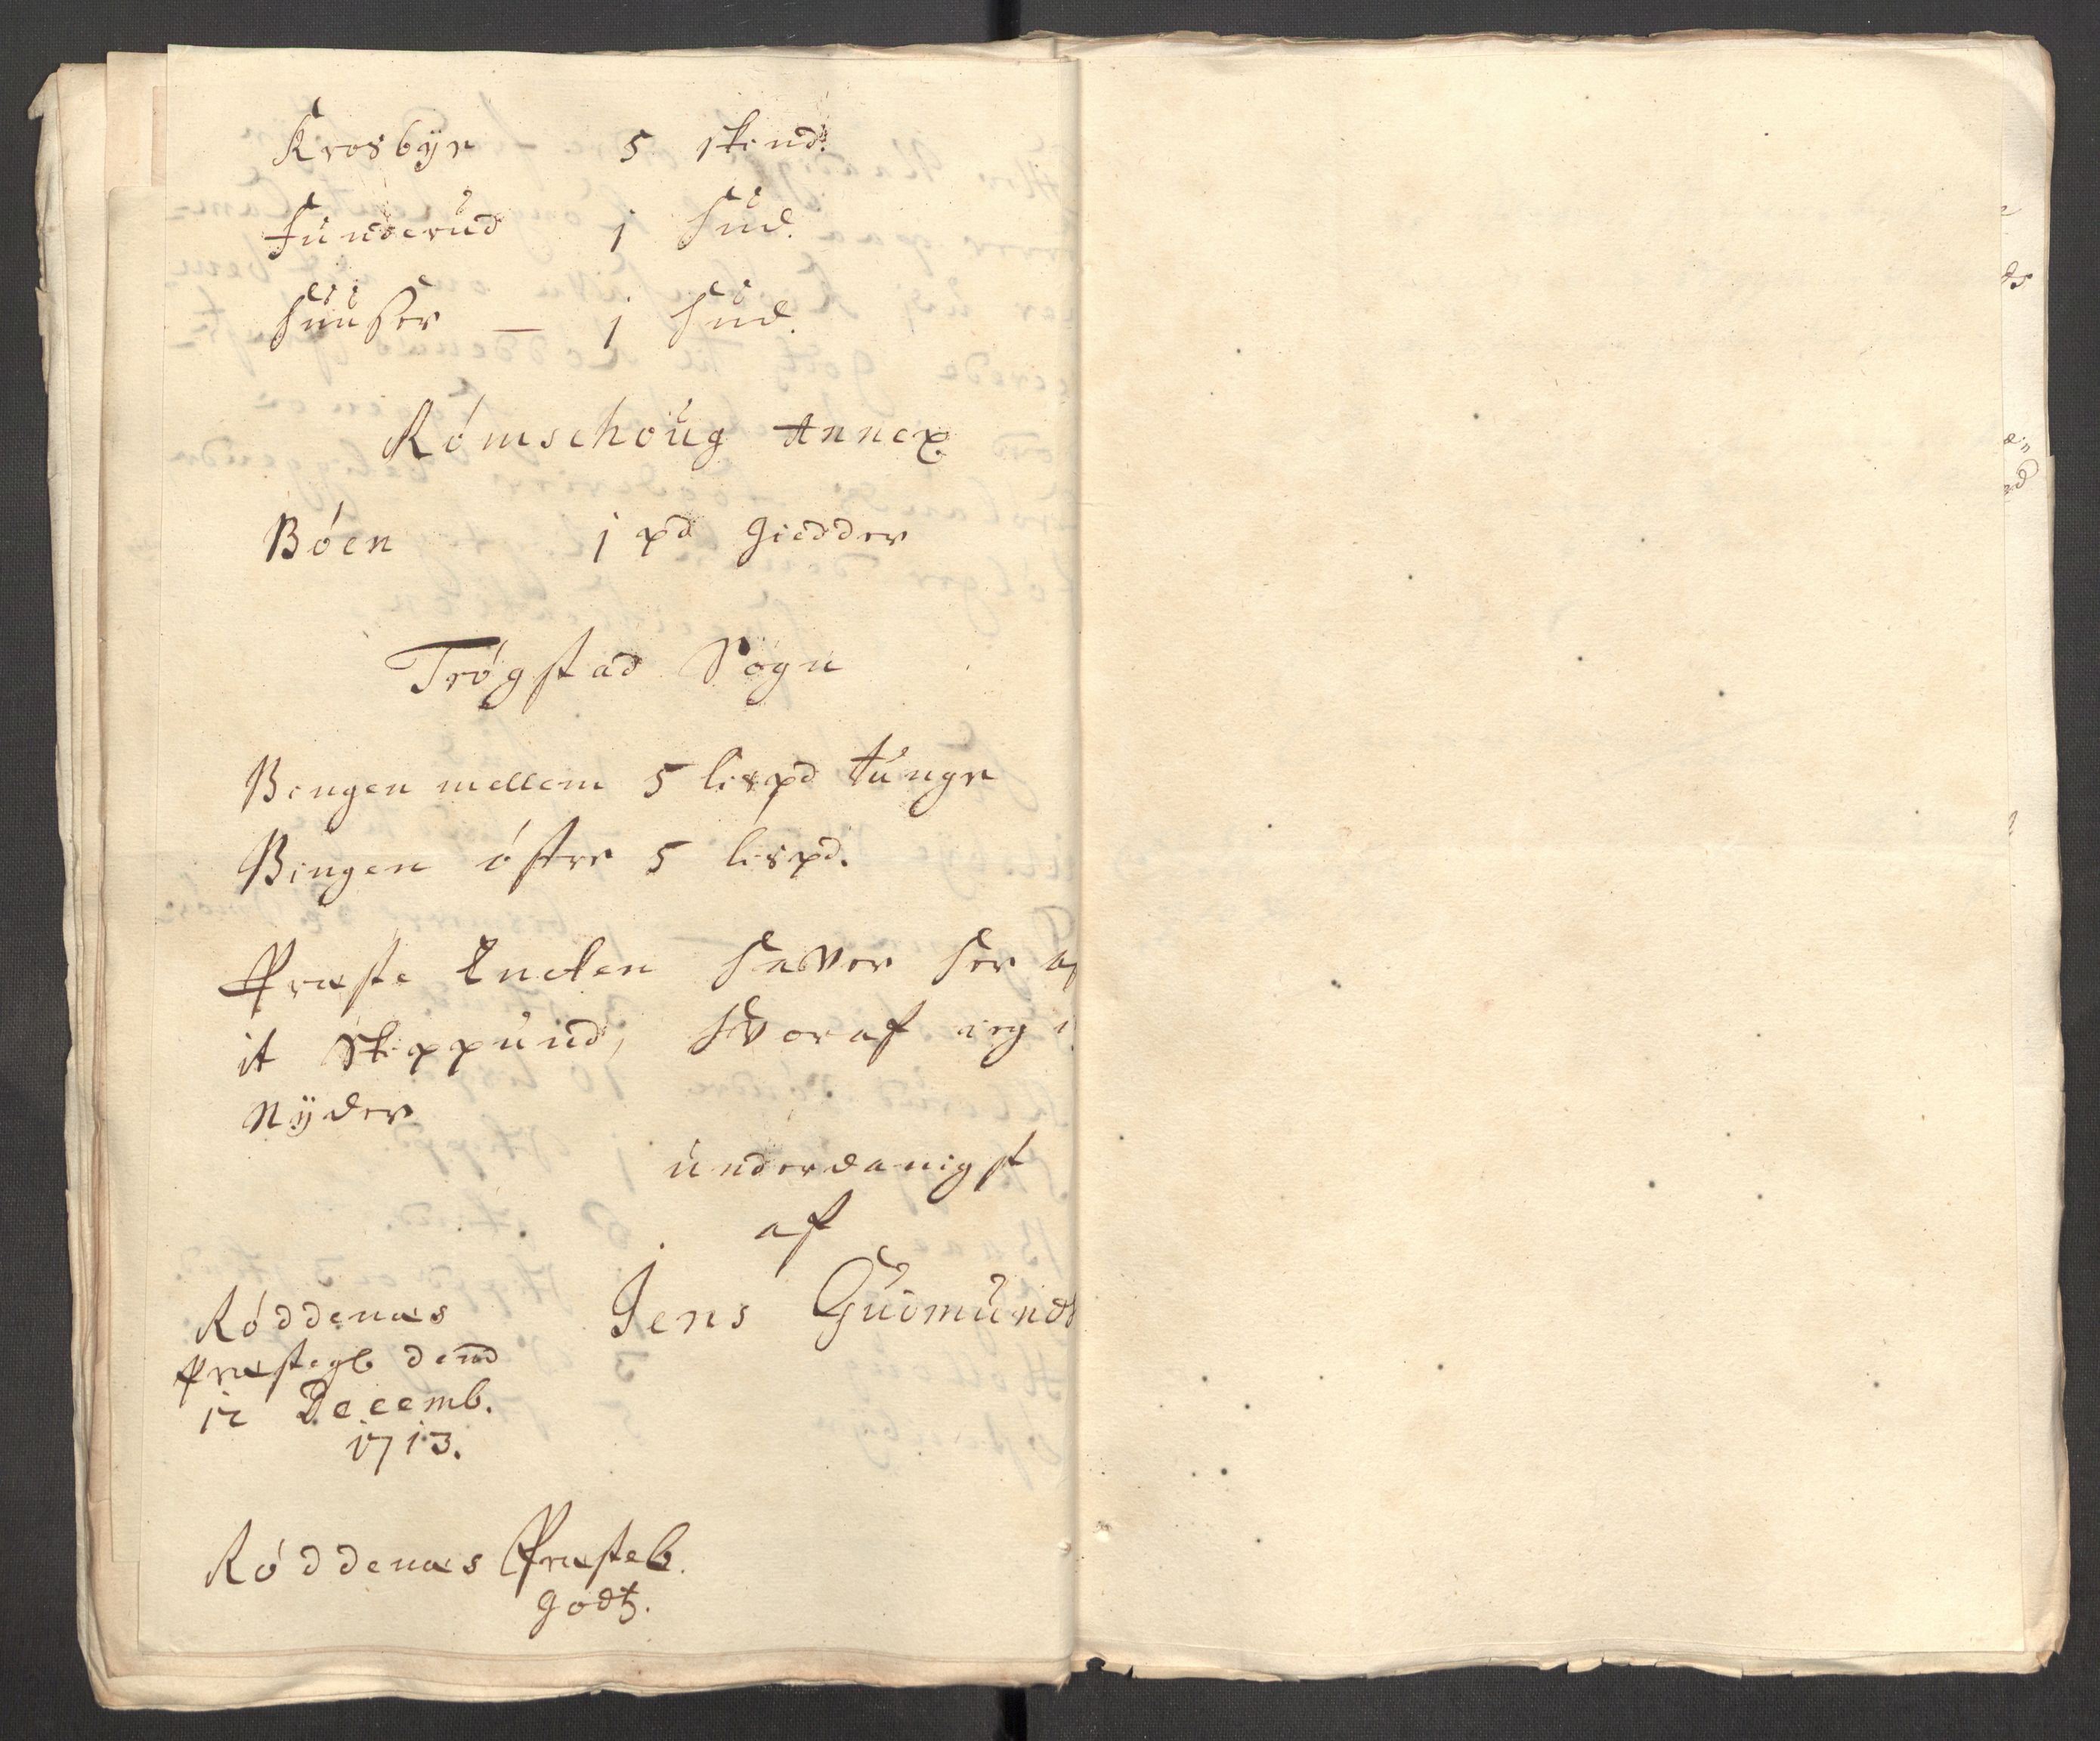 Krosbÿe 5 skind.
Funderud 1 hud.
Huuser — 1 hud.
Rómschoug Annex.
Bóen 1 pd giedder
Trógstad Sogn
Bingen mellem 5 lispd tunge
Bingen óstre 5 lispd.
Præste Encken haver her af
it Skippund, hvoraf ieg i
nÿder
underdanigst
af
Jens Gudmunds
Róddenæs
Præstegb dend
12 Decemb.
1713.
Róddenæs Præsteb.
godtz.